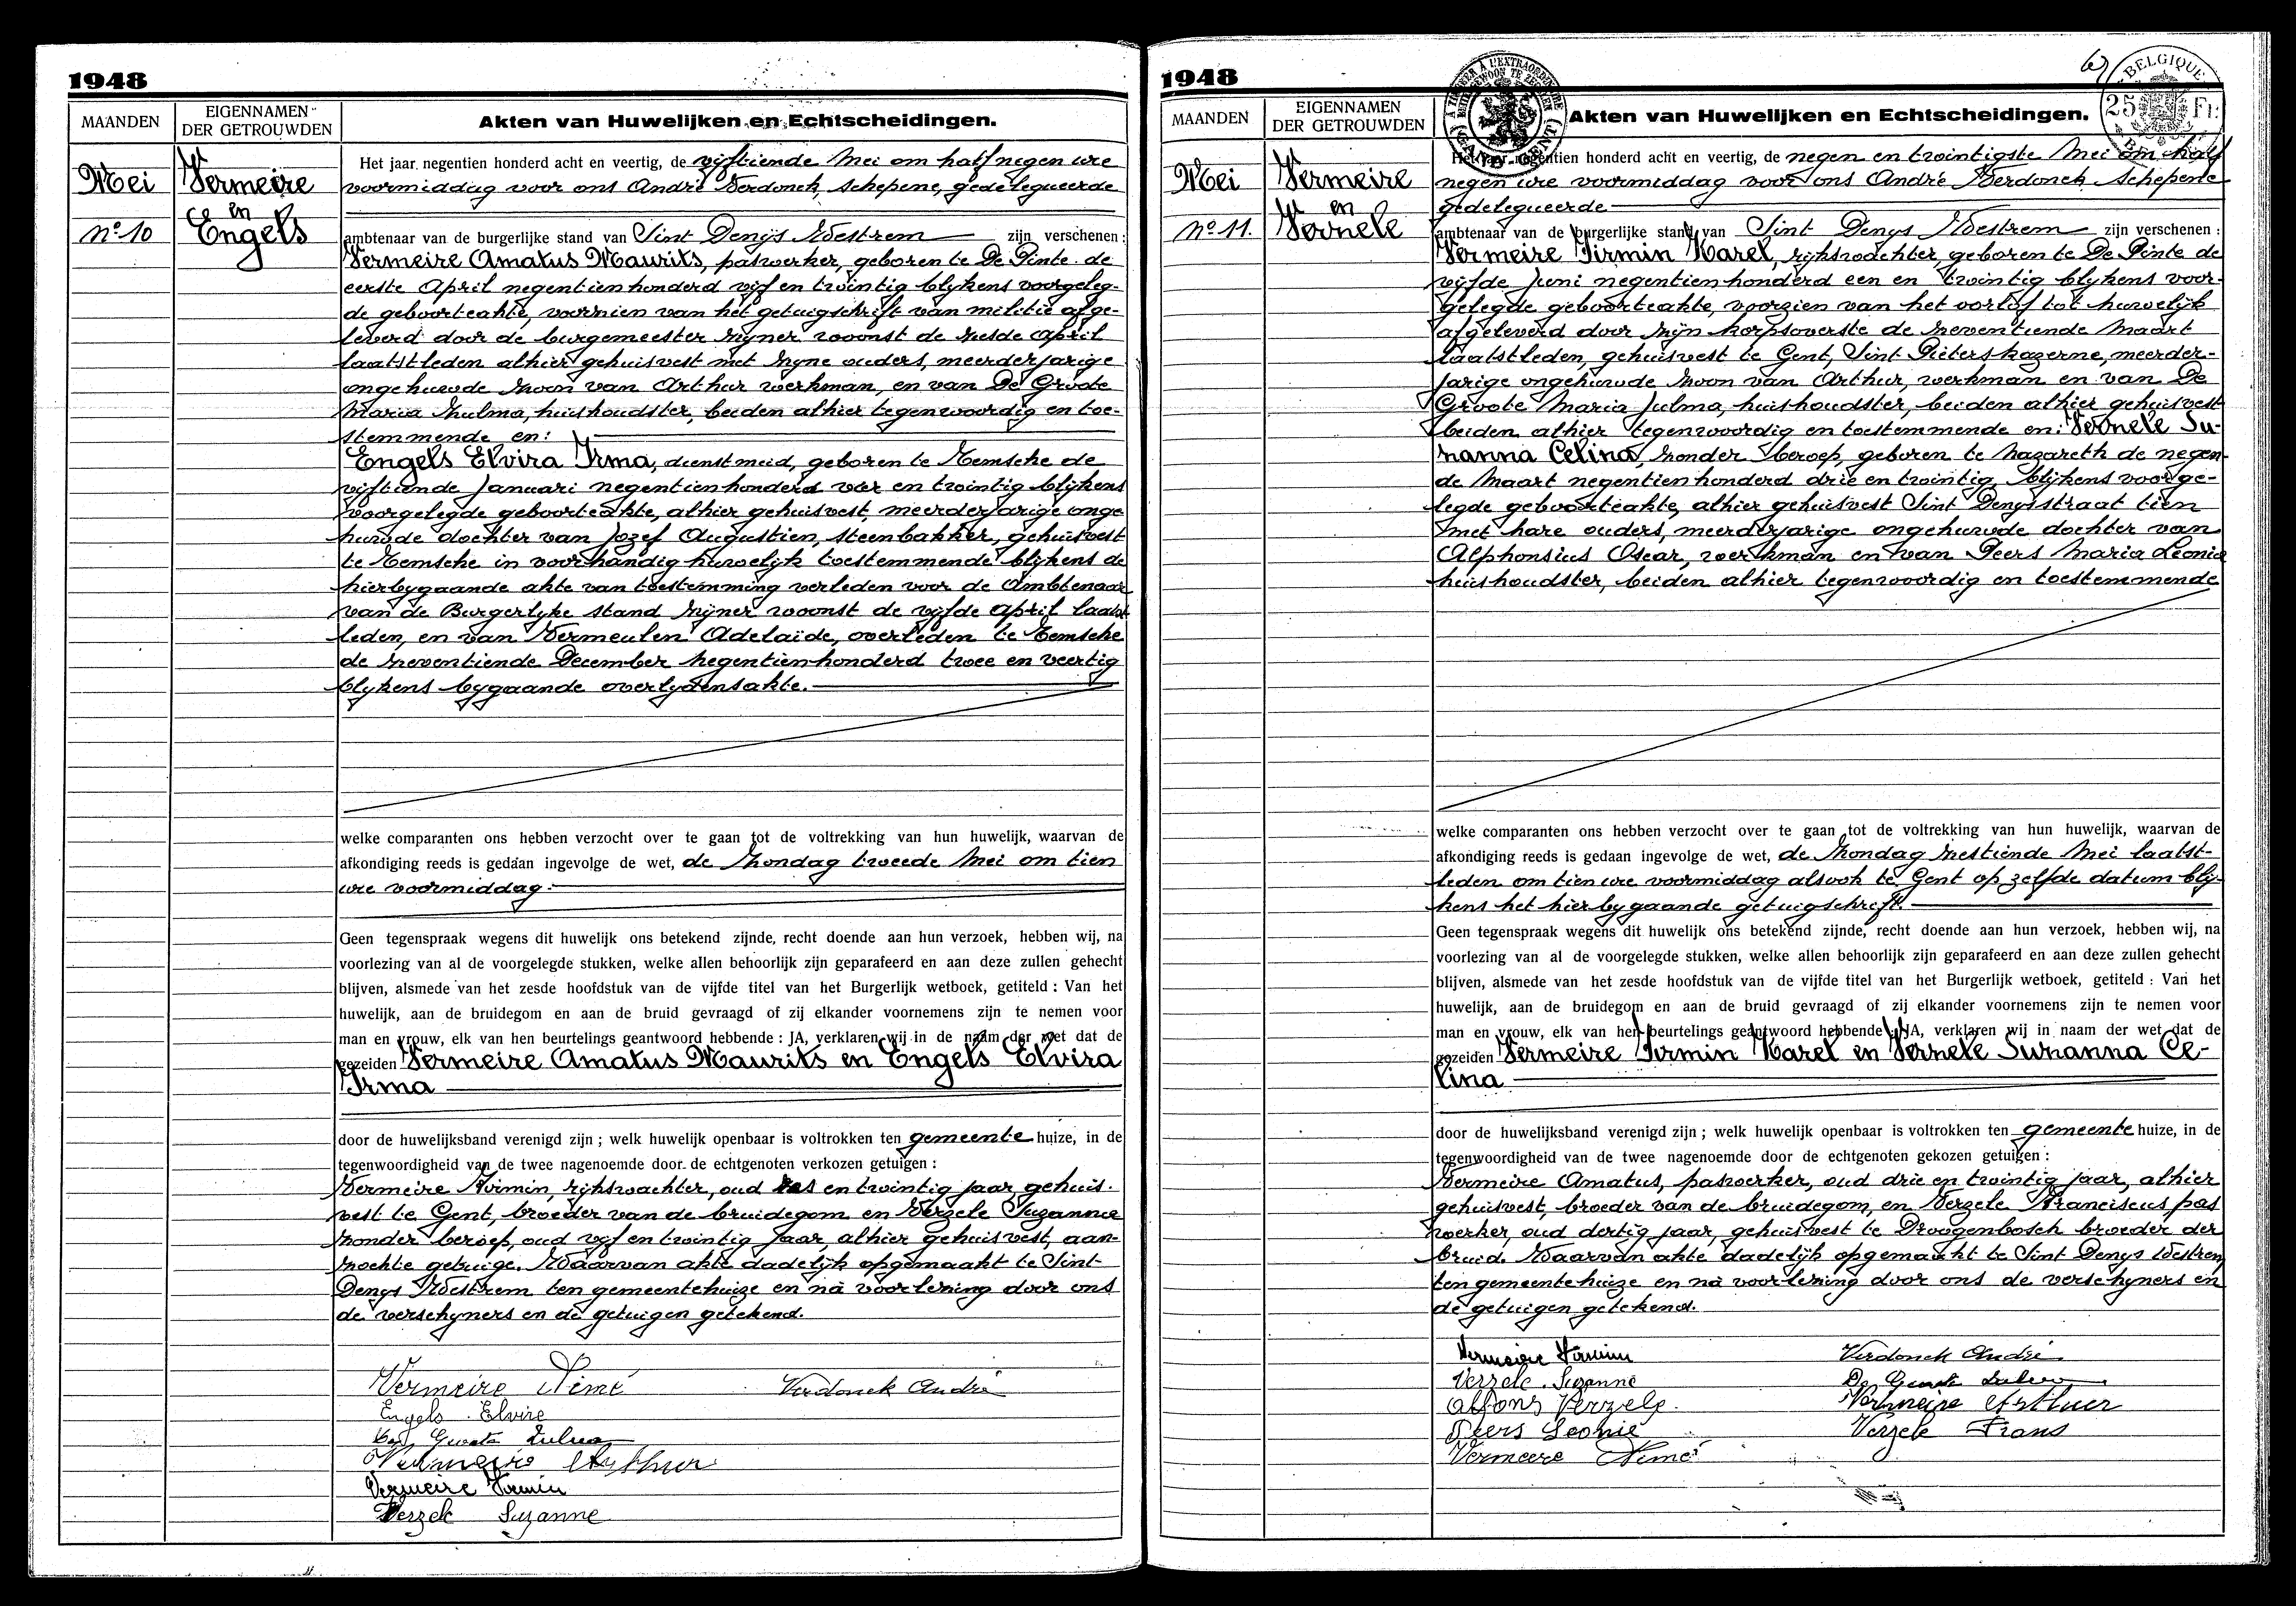 1948
MAANDEN
EIGENNAMEN
DER GETROUWDEN
Akten van Huwelijken en Echtscheidingen.
Mei
Vermeire
en
Engels
No 10
Het jaar negentien honderd acht en veertig, de vijftiende Mei om half negen ure
voormiddag voor ons André Verdonck, schepene, gedelegueerde
ambtenaar van de burgerlijke stand van Sint Denys Westrem zijn verschenen :
Vermeire Amatus Maurits, paswerker, geboren te De Pinte de
eerste April negentienhonderd vijf en twintig blijkens voorgeleg-
de geboorteakte, voorzien van het getuigschrift van militie afge-
leverd door de burgemeester zijner woonst de zesde april
laatstleden alhier gehuisvest met zyne ouders, meerderjarige
ongehuwde zoon van Arthur werkman, en van De Groote
Maria Zulma, huishoudster, beiden alhier tegenwoordig en toe-
stemmende en:
Engels Elvira Irma, dienstmeid, geboren te Temsche de
vijftiende Januari negentienhonderd vier en twintig blijkens
voorgelegde geboorteakte, alhier gehuisvest, meerderjarige onge
huwde dochter van Jozef Augustien, steenbakker, gehuisvest
te Temsche in voorhandig huwelijk toestemmende blijkens de
hierbygaande akte van toestemming verleden voor de Ambtenaar
van de Burgerlyke stand zijner woonst de vijfde april laatst
leden, en van Vermeulen Adelaïde, overleden te Temsche
de zeventiende December negentienhonderd twee en veertig
blykens bygaande overlydensakte.
welke comparanten ons hebben verzocht over te gaan tot de voltrekking van hun huwelijk, waarvan de
afkondiging reeds is gedaan ingevolge de wet, de Zondag tweede Mei om tien
ure voormiddag.
Geen tegenspraak wegens dit huwelijk ons betekend zijnde, recht doende aan hun verzoek, hebben wij, na
voorlezing van al de voorgelegde stukken, welke allen behoorlijk zijn geparafeerd en aan deze zullen gehecht
blijven, alsmede van het zesde hoofdstuk van de vijfde titel van het Burgerlijk wetboek, getiteld : Van het
huwelijk, aan de bruidegom en aan de bruid gevraagd of zij elkander voornemens zijn te nemen voor
man en vrouw, elk van hen beurtelings geantwoord hebbende : JA, verklaren wij in de naam der wet dat de
gezeiden Vermeire Amatus Maurits en Engels Elvira
Irma
door de huwelijksband verenigd zijn ; welk huwelijk openbaar is voltrokken ten gemeente huize, in de
tegenwoordigheid van de twee nagenoemde door de echtgenoten verkozen getuigen :
Vermeire Firmin, rijkswachter, oud zes en twintig jaar gehuis.
vest te Gent, broeder van de bruidegom en Verzele Suzanne
zonder beroep, oud vijf en twintig jaar, alhier gehuisvest, aan-
zochte getuige. Waarvan akte dadelijk opgemaakt te Sint
Denys Westrem ten gemeentehuize en nà voorlezing door ons
de verschyners en de getuigen getekend.
Vermeire Aimé
Verdonck André
Engels Elvire
De Groote Zulma
Vermeire Arthur
Vermeire Firmin
Verzele Suzanne
1948
67
BELGIQUE
25 Fr.
MAANDEN
EIGENNAMEN
DER GETROUWDEN
Akten van Huwelijken en Echtscheidingen.
Mei
Vermeire
en
Verzele
No 11.
Het jaar negentien honderd acht en veertig, de negen en twintigste Mei om half
negen ure voormiddag voor ons André Verdonck Schepene
gedelegueerde
ambtenaar van de burgerlijke stand van Sint Denys Westrem zijn verschenen :
Vermeire Firmin Karel, rijkswachter, geboren te De Pinte de
vijfde Juni negentienhonderd een en twintig blykens voor-
gelegde geboorteakte, voorzien van het verlof tot huwelijk
afgeleverd door zijn korpsoverste de zeventiende Maart
laatstleden, gehuisvest te Gent, Sint Pieterskazerne, meerder-
jarige ongehuwde zoon van Arthur, werkman en van De
Groote Maria Julma, huishoudster, beiden alhier gehuisvest
beiden alhier tegenwoordig en toestemmende en: Verzele Su-
zanna Celina, zonder beroep, geboren te Nazareth de negen-
de Maart negentienhonderd drie en twintig, blijkens voorge-
legde geboorteakte, alhier gehuisvest Sint Denysstraat tien
met hare ouders, meerderjarige ongehuwde dochter van
Alphonsius Oscar, werkman en van Peers Maria Leonie
huishoudster, beiden alhier tegenwoordig en toestemmende
welke comparanten ons hebben verzocht over te gaan tot de voltrekking van hun huwelijk, waarvan de
afkondiging reeds is gedaan ingevolge de wet, de Zondag zestiende Mei laatst-
leden om tien ure voormiddag alsook te Gent op zelfde datum bly-
kens het hierbygaande getuigschrift.
Geen tegenspraak wegens dit huwelijk ons betekend zijnde, recht doende aan hun verzoek, hebben wij, na
voorlezing van al de voorgelegde stukken, welke allen behoorlijk zijn geparafeerd en aan deze zullen gehecht
blijven, alsmede van het zesde hoofdstuk van de vijfde titel van het Burgerlijk wetboek, getiteld : Van het
huwelijk, aan de bruidegom en aan de bruid gevraagd of zij elkander voornemens zijn te nemen voor
man en vrouw, elk van hen beurtelings geantwoord hebbende : JA, verklaren wij in naam der wet dat de
gezeiden Vermeire Firmin Karel en Verzele Suzanna Ce-
lina
door de huwelijksband verenigd zijn ; welk huwelijk openbaar is voltrokken ten gemeente huize, in de
tegenwoordigheid van de twee nagenoemde door de echtgenoten gekozen getuigen :
Vermeire Amatus, paswerker, oud drie en twintig jaar, alhier
gehuisvest, broeder van de bruidegom, en Verzele Franciscus, pas
werker, oud dertig jaar, gehuisvest te Droogenbosch broeder der
bruid. Waarvan akte dadelijk opgemaakt te Sint Denys Westrem
ten gemeentehuize en nà voorlezing door ons de verschyners en
de getuigen getekend.
Vermeire Firmin
Verdonck André
Verzele Suzanne
De Groote Zulma
Alfons Verzele
Vermeire Arthur
Peers Leonie
Verzele Frans
Vermeire Aimé